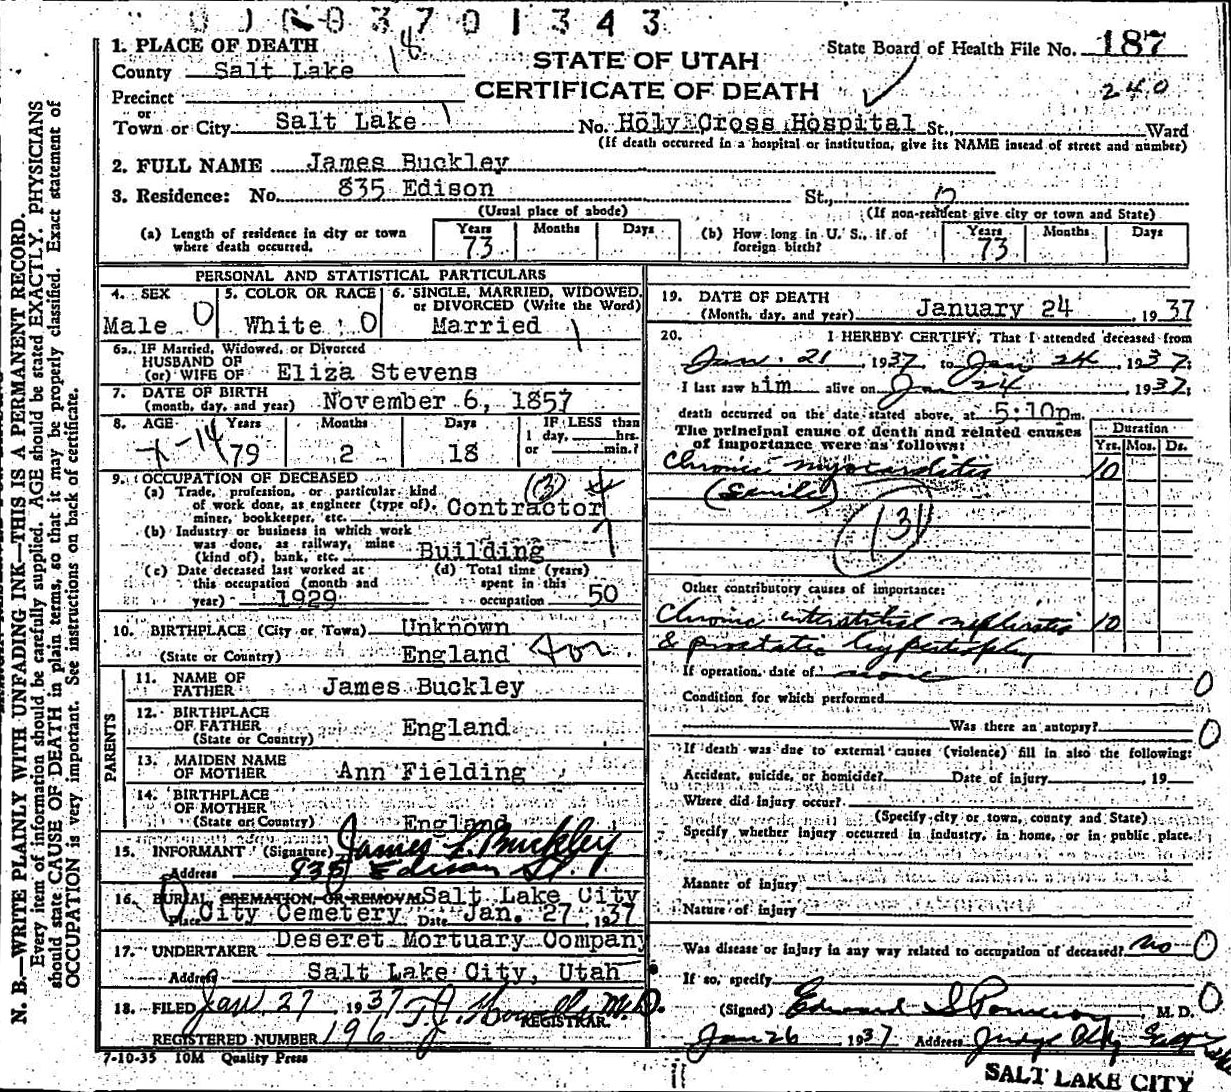 003701343
1. PLACE OF DEATH 18
STATE OF UTAH
CERTIFICATE OF DEATH
State Board of Health File No. 187
240
County Salt Lake
Precinct
or
Town or City Salt Lake No. Holy Cross Hospital St., Ward
(If death occurred in a hospital or institution, give its NAME instead of street and number)
2. FULL NAME James Buckley
3. Residence: No. 835 Edison St.,
(Usual place of abode) (If non-resident give city or town and State)
(a) Length of residence in city or town where death occurred. Years 73 Months Days
(b) How long in U. S., if of foreign birth? Years 73 Months Days
PERSONAL AND STATISTICAL PARTICULARS
4. SEX Male 0
5. COLOR OR RACE White 0
6. SINGLE, MARRIED, WIDOWED, or DIVORCED (Write the Word) Married 1
6a. IF Married, Widowed, or Divorced
HUSBAND OF
(or) WIFE OF Eliza Stevens
7. DATE OF BIRTH
(month, day, and year) November 6, 1857
8. AGE Years 79 Months 2 Days 18 IF LESS than 1 day, hrs. or min.?
9. OCCUPATION OF DECEASED (3)
(a) Trade, profession, or particular kind
of work done, as engineer (type of), Contractor
miner, bookkeeper, etc.
(b) Industry or business in which work
was done, as railway, mine
(kind of), bank, etc. Building
(c) Date deceased last worked at
this occupation (month and
year) 1929
(d) Total time (years)
spent in this
occupation 50
10. BIRTHPLACE (City or Town) Unknown
(State or Country) England
PARENTS
11. NAME OF
FATHER James Buckley
12. BIRTHPLACE
OF FATHER England
(State or Country)
13. MAIDEN NAME
OF MOTHER Ann Fielding
14. BIRTHPLACE
OF MOTHER
(State or Country) England
15. INFORMANT (Signature) James L. Buckley
Address 835 Edison St.
16. BURIAL, CREMATION, OR REMOVAL Salt Lake City
Place City Cemetery Date Jan. 27, 1937
17. UNDERTAKER Deseret Mortuary Company
Address Salt Lake City, Utah
18. FILED Jan 27 1937 T. J. Howells M.D.
REGISTRAR.
REGISTERED NUMBER 196
7-10-35 10M Quality Press
19. DATE OF DEATH
(Month, day, and year) January 24, 1937
20. I HEREBY CERTIFY, That I attended deceased from
Jan. 21, 1937, to Jan 24 1937;
I last saw him alive on Jan 24 1937;
death occurred on the date stated above, at 5:10pm.
The principal cause of death and related causes
of importance were as follows:
Duration
Yrs. Mos. Ds.
Chronic myocarditis 10
(Senile)
131
Other contributory causes of importance:
Chronic interstitial nephritis 10
& prostatic hypertrophy
If operation, date of none 0
Condition for which performed
Was there an autopsy? 0
If death was due to external causes (violence) fill in also the following:
Accident, suicide, or homicide? Date of injury , 19
Where did injury occur?
(Specify city or town, county and State)
Specify whether injury occurred in industry, in home, or in public place.
Manner of injury
Nature of injury
Was disease or injury in any way related to occupation of deceased? no 0
If so, specify
(Signed) Edward S Pomeroy, M. D. 0
Jan 26 1937 Address Judge Bldg
SALT LAKE CITY
N. B.—WRITE PLAINLY WITH UNFADING INK—THIS IS A PERMANENT RECORD.
Every item of information should be carefully supplied. AGE should be stated EXACTLY. PHYSICIANS
should state CAUSE OF DEATH in plain terms, so that it may be properly classified. Exact statement of
OCCUPATION is very important. See instructions on back of certificate.